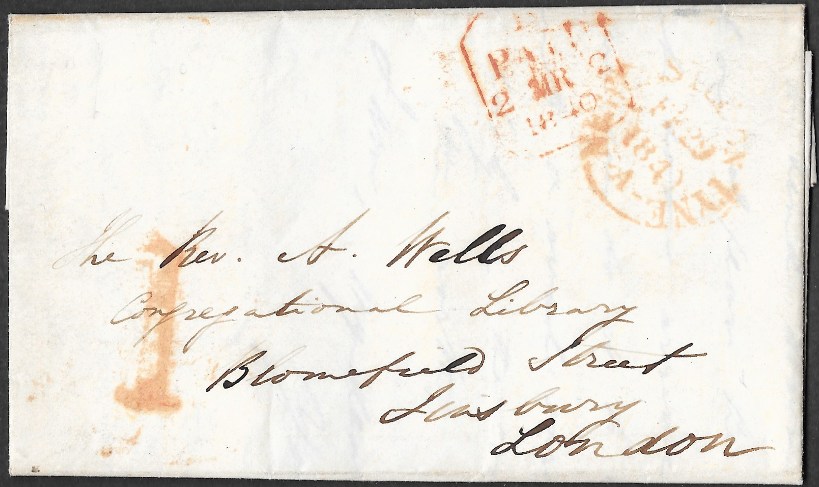 PAID
2 MR 2
1840
NEWCASTLE-ON-TYNE
FE 29
1840
1
The Rev. A. Wells
Congregational Library
Blomefield Street
Finsbury
London